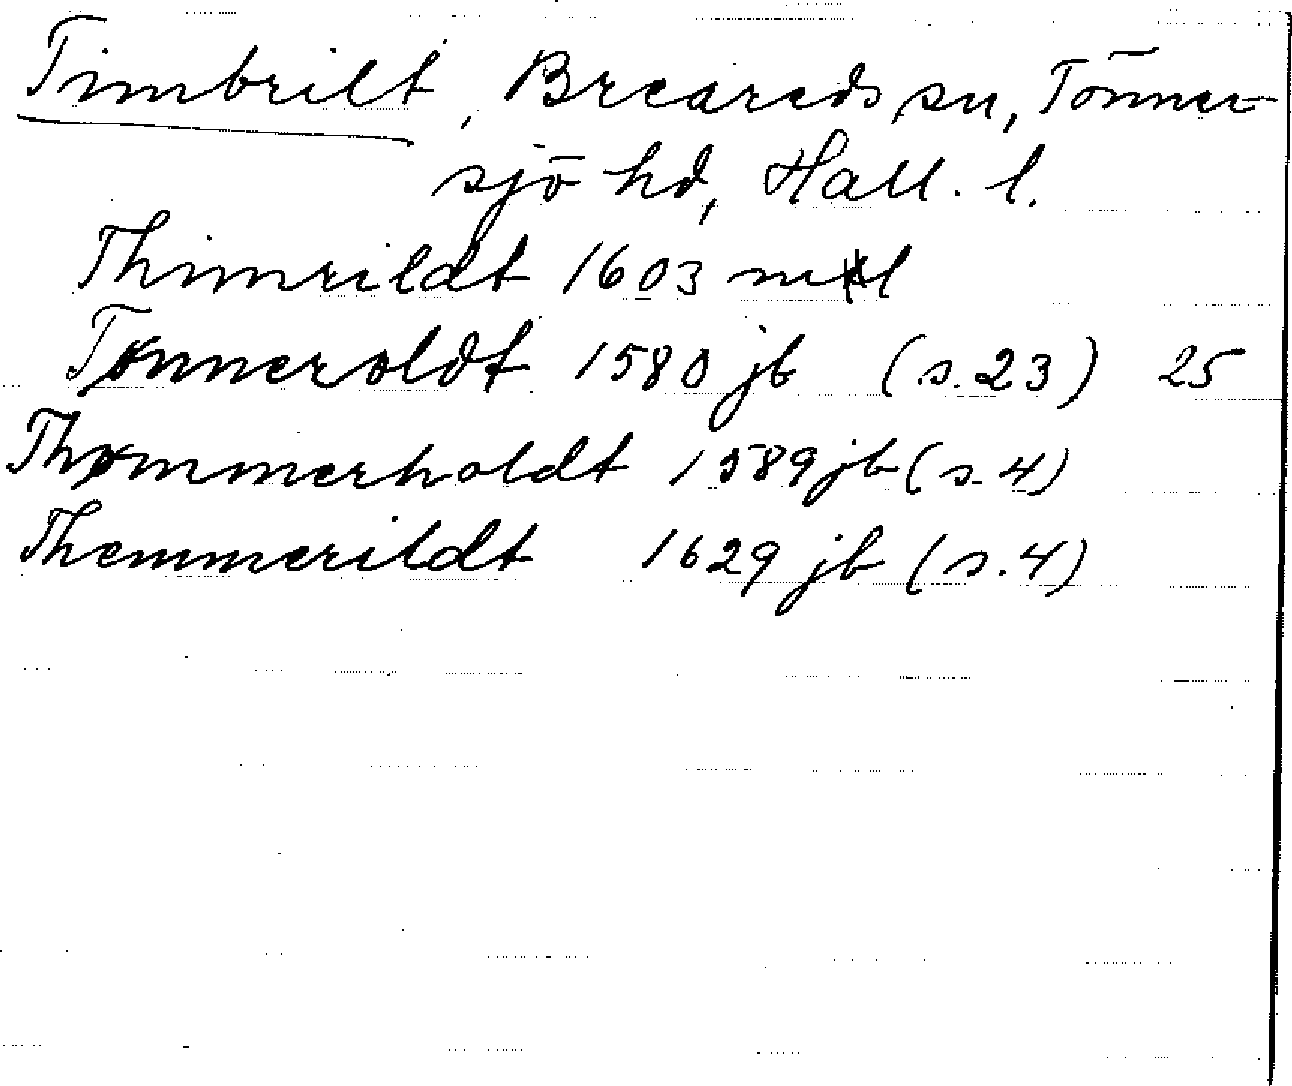 Timbrilt, Breareds sn, Tönner-
sjö hd, Hall. l.
Thimrildt 1603 mtl
Tønneroldt 1580 jb (s. 23) 25
Thømmerholdt 1589 jb (s. 4)
Themmerildt 1629 jb (s. 4)